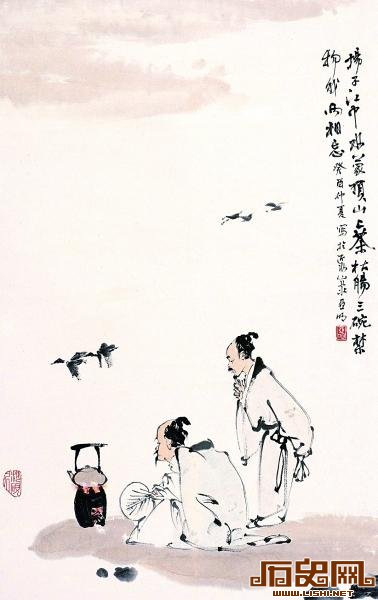 揚子江中水蒙頂山上茶枯腸三碗禁
物我两相忘癸酉仲夏寫於亚明
历史网
WWW.LISHI.NET